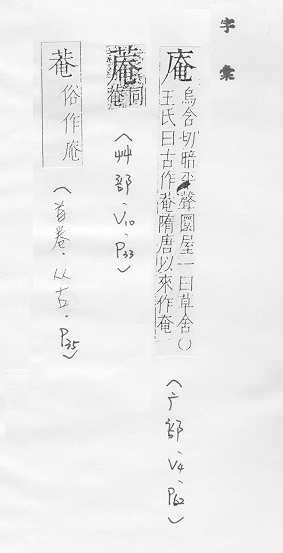 字彙
庵 烏含切暗平聲圜屋一曰草舍○
王氏曰古作菴隋唐以來作庵
(广部、V4、P62)
蓭 同
菴
(艸部、V10、P33)
菴 俗作庵
(首卷.从古.P35)